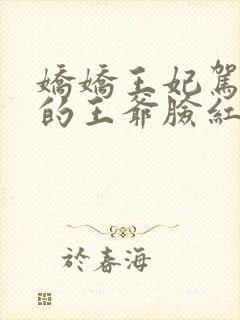 嬌嬌王妃駕
的王爺臉紅
於春海